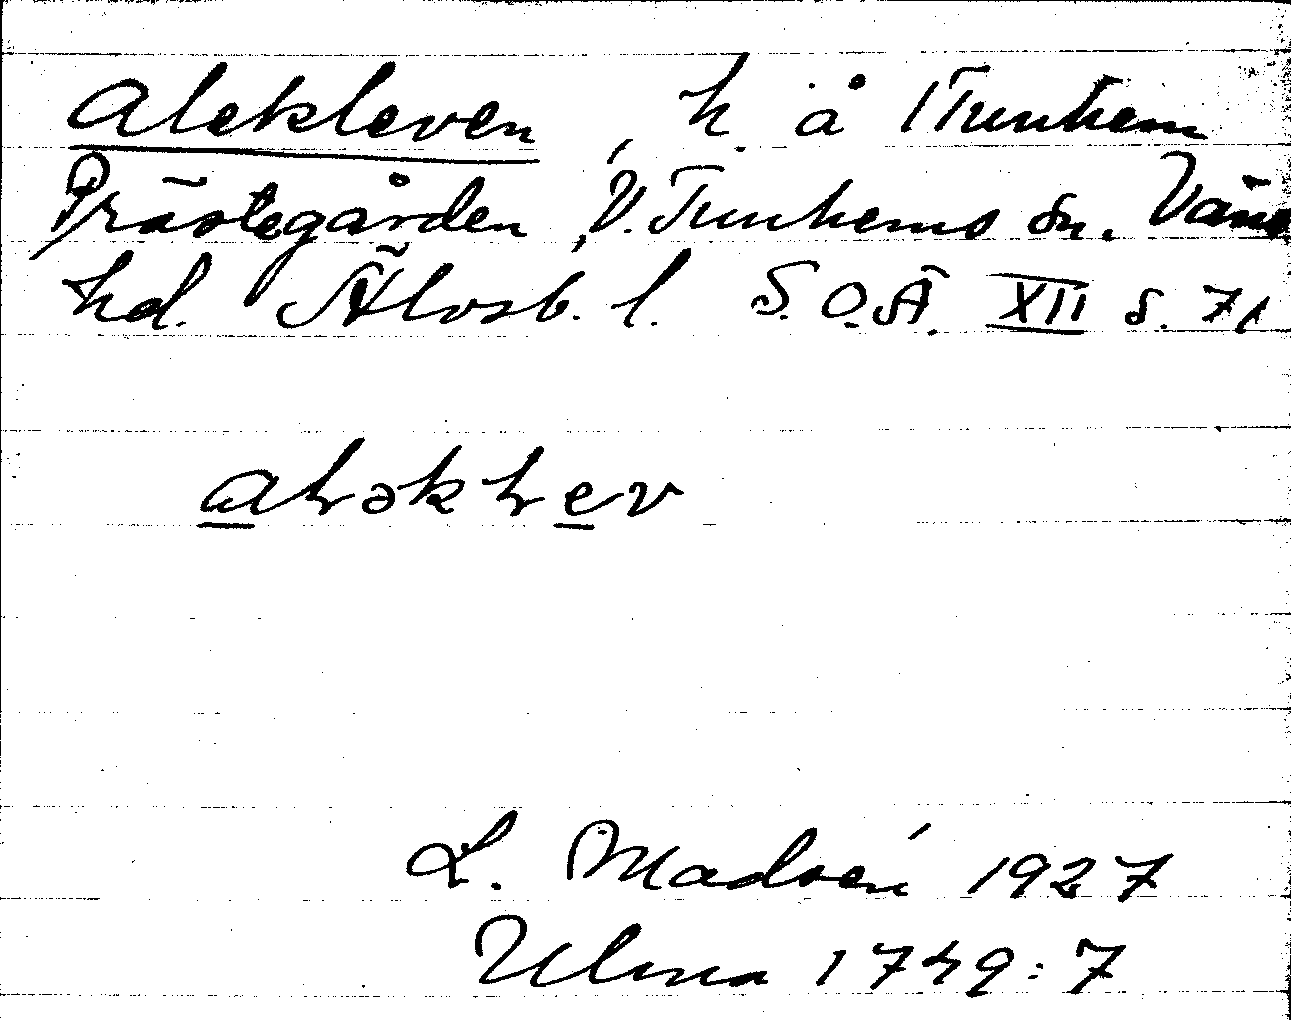 Alekleven, h å Trunhem
Prästegården, V. Tunhems sn. Väne
hd. Älvsb. l. S.O.Ä. XII s. 71
aləklev
L. Madsén 1927
Ulma 1749:7